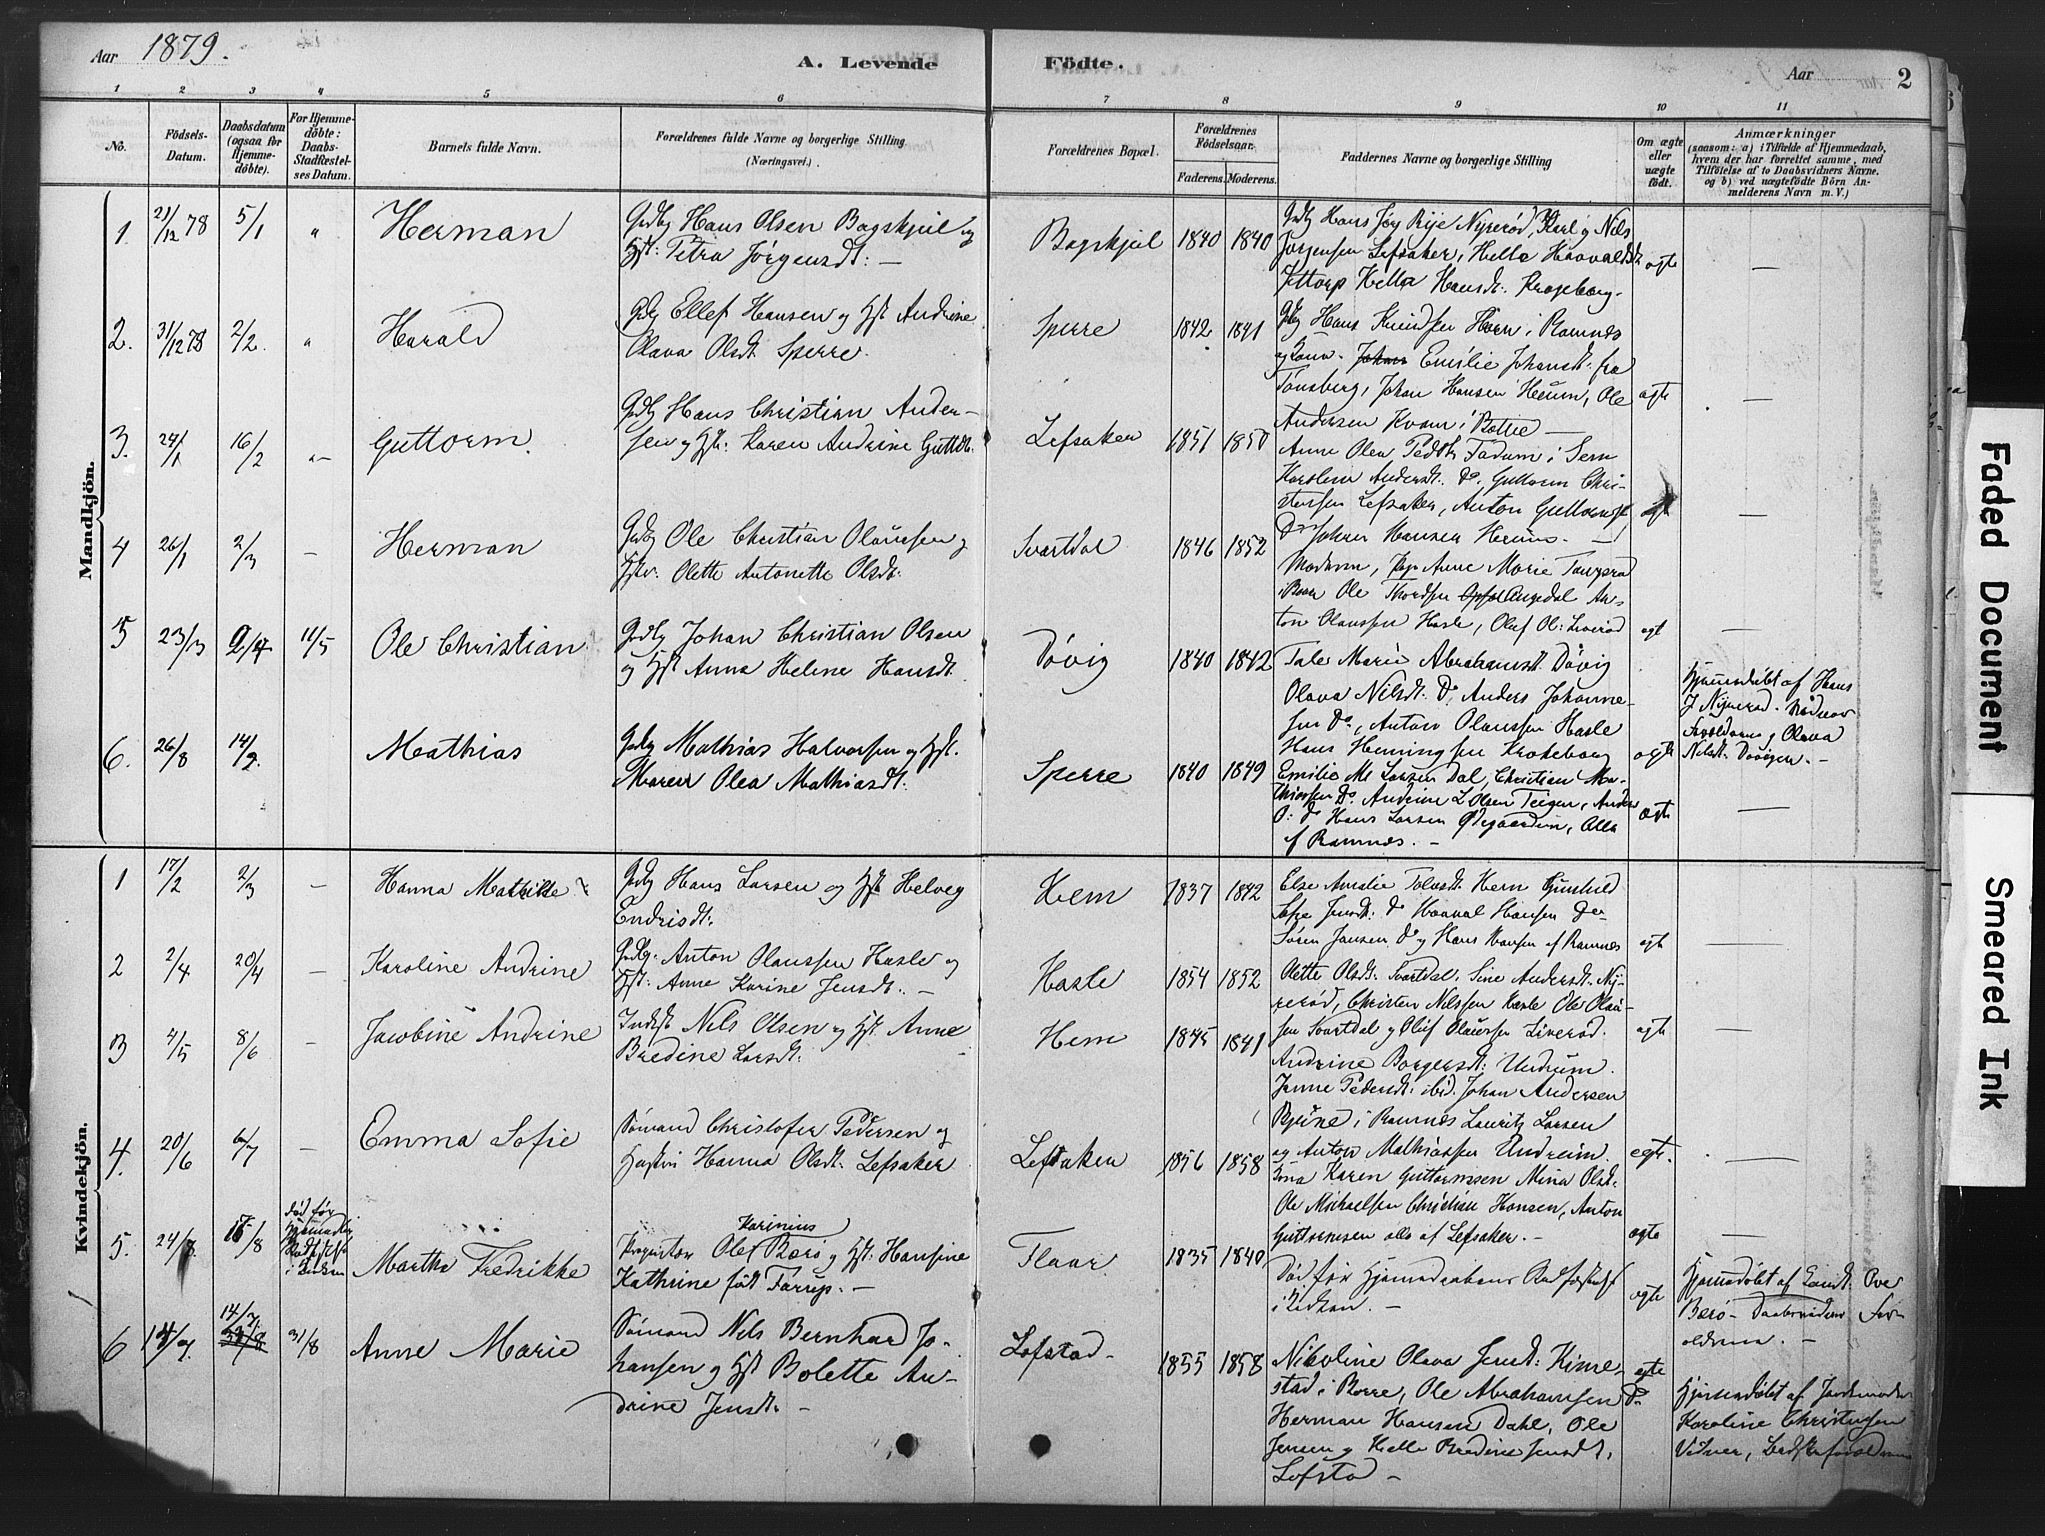 Aar 1879.
A. Levende Födte.
Aar 2
1 2 3 4 5 6 7 8 9 10 11
No.
Födsels-Datum.
Daabsdatum (ogsaa for Hjemmedöbte).
For Hjemmedöbte: Daabs-Stadfæstelses Datum.
Barnets fulde Navn.
Forældrenes fulde Navne og borgerlige Stilling (Næringsvei).
Forældrenes Bopæl.
Forældrenes Födselsaar.
Faderens. Moderens.
Faddernes Navne og borgerlige Stilling
Om ægte eller uægte født.
Anmærkninger
(saasom: a) i Tilfælde af Hjemmedaab,
hvem der har forrettet samme, med
Tilföielse af to Daabsvidners Navne.
og b) ved uægtefödte Börn An-
melderens Navn m. V.)
Mandkjön.
1. 21/12 78 5/1 " Herman
Gdbg Hans Olsen Bagskjul og
Hst: Petra Jørgensdt: —
Bagskjul 1840 1840
Gdbg Hans Jørg Rije Nyrerød, Karl og Nils
Jørgensen Lefsaker, Helle Haavaldsdt
Jttorp Hella Hansdt. Krogeborg.
ægte —
2. 31/12 78 2/2. " Harald
Gdbg Ellef Hansen og Hst Andrine
Olava Olsdt. Sperre.
Sperre 1842 1841
Gdbg Hans Knudsen Horn i Ramnes
og Kone. Emilie Johansdt. fra
Tønsberg, Johan Hansen Heium, Ole
Andersen Kvam i Borre —
ægte —
3. 24/1 16/2 " Guttorm.
Gdbg Hans Christian Ander-
sen og Hst: Karen Andrine Guttdt:
Lefsaken 1851 1850
Anne Olea Pedsdt Fadum i Sem
Karoline Andersdt. Do. Guttorm Chri-
stensen Lefsaker, Anton Guttormsen
ægt —
4 26/1 2/3 — Herman
Gdbg Ole Christian Olaussen og
Hst: Olette Antonette Olsdt:
Svartdal 1846 1852
Do Johan Hansen Heium. —
Moderen, Pige Anne Marie Tangerud
i Borre Ole Thordsen Angedal An-
ton Olaussen Hasle, Oluf Ol: Liverød
ægt —
5 23/3 9/4 11/5 Ole Christian
Gdbg Johan Christian Olsen
og Hst Anna Helene Hansdt.
Døvig 1840 1842
Tale Marie Abrahamsdt. Døvig
Olava Nilsdt. Do, Anders Johanne-
sen Do, Anton Olaussen Hasle
Hans Hemingsen Krokeborg
ægte
Hjemmedøbt af Hans
J Nyrerød. Vidner
Forældrene og Olava
Nilsdt. Døvigen. —
6. 26/8 14/9. Mathias
Gdbg Mathias Halvorsen og Hst.
Maren Olea Mathiasdt.
Sperre 1840 1849
Emilie M. Larsen Dal, Christian Ma-
thiassen Do. Andrine L Olsen Teigen, Anders
O: Do Hans Larsen Ødegaarden, Alle
af Ramnes. —
ægte —
Kvindekjön.
1 17/2 2/3 — Hanna Mathilde
Gdbg Hans Larsen og Hst Helveg
Endrisdt:
Hem 1837 1842
Else Amalie Tolvsdt. Hem Gunhild
Sofie Jensdt. Do Haaval Hansen Do
Søren Jansen Do og Hans Hansen af Ramnes
ægt —
2 2/4 20/4 — Karoline Andrine
Gdbg. Anton Olaussen Hasle og
Hst: Anne Karine Jensdt. —
Hasle 1854 1852
Olette Olsdt: Svartdal, Sine Andersdt. Ny-
rerød, Christen Nilssen Hasle Ole Olau-
sen Svartdal og Oluf Olaussen Liverød.
ægt —
3 4/5 8/6 — Jacobine Andrine
Inds Nils Olsen og Hst. Anne
Bredine Larsdt:
Hem 1845 1841
Andrine Borgersdt: Undrum.
Jenne Pedersdt: ibid. Johan Andersen
Bjune i Ramnes Lauritz Larsen
og Anton Mathiassen Undrum.
ægte. —
4. 20/6 6/7 — Emma Sofie
Sømand Christofer Pedersen og
Hustru Hanna Olsdt. Lefsaker
Lefsaken 1856 1858
Karen Guttormsen Mina Olsdt:
Ole Michaelsen Christian Hansen, Anton
Guttormsen alle af Lefsaker. —
ægte —
5. 24/7 17/8 død før Hjemmedaabens Stadfæstelse i Kirken Martha Fredrikke
Proprietær Olef Karinius Barø og Hst: Hansine
Kathrine født Farrup. —
Flaar 1835 1840
Død før Hjemmedaabens Stadfæstelse
i Kirken. —
ægte
Hjemmedøbt af Cand: Ove
Barø — Daabsvidner For-
ældrene. —
6 14/7. 14/7. 31/8 Anne Marie
Sømand Nils Bernhard Jo-
hansen og Hst Bolette An-
drine Jensdt. —
Lofstad 1855 1858
Nikoline Olava Jensdt: Kime-
stad i Borre, Ole Abrahamsen Do
Herman Hansen Dahl, Ole
Jensen og Helle Bredine Jensdt.
Lofstad —
ægte
Hjemmedøbt af Jordemoder
Karoline Christensen
Vidner, Bedsteforældrene
Faded Document
Smeared Ink